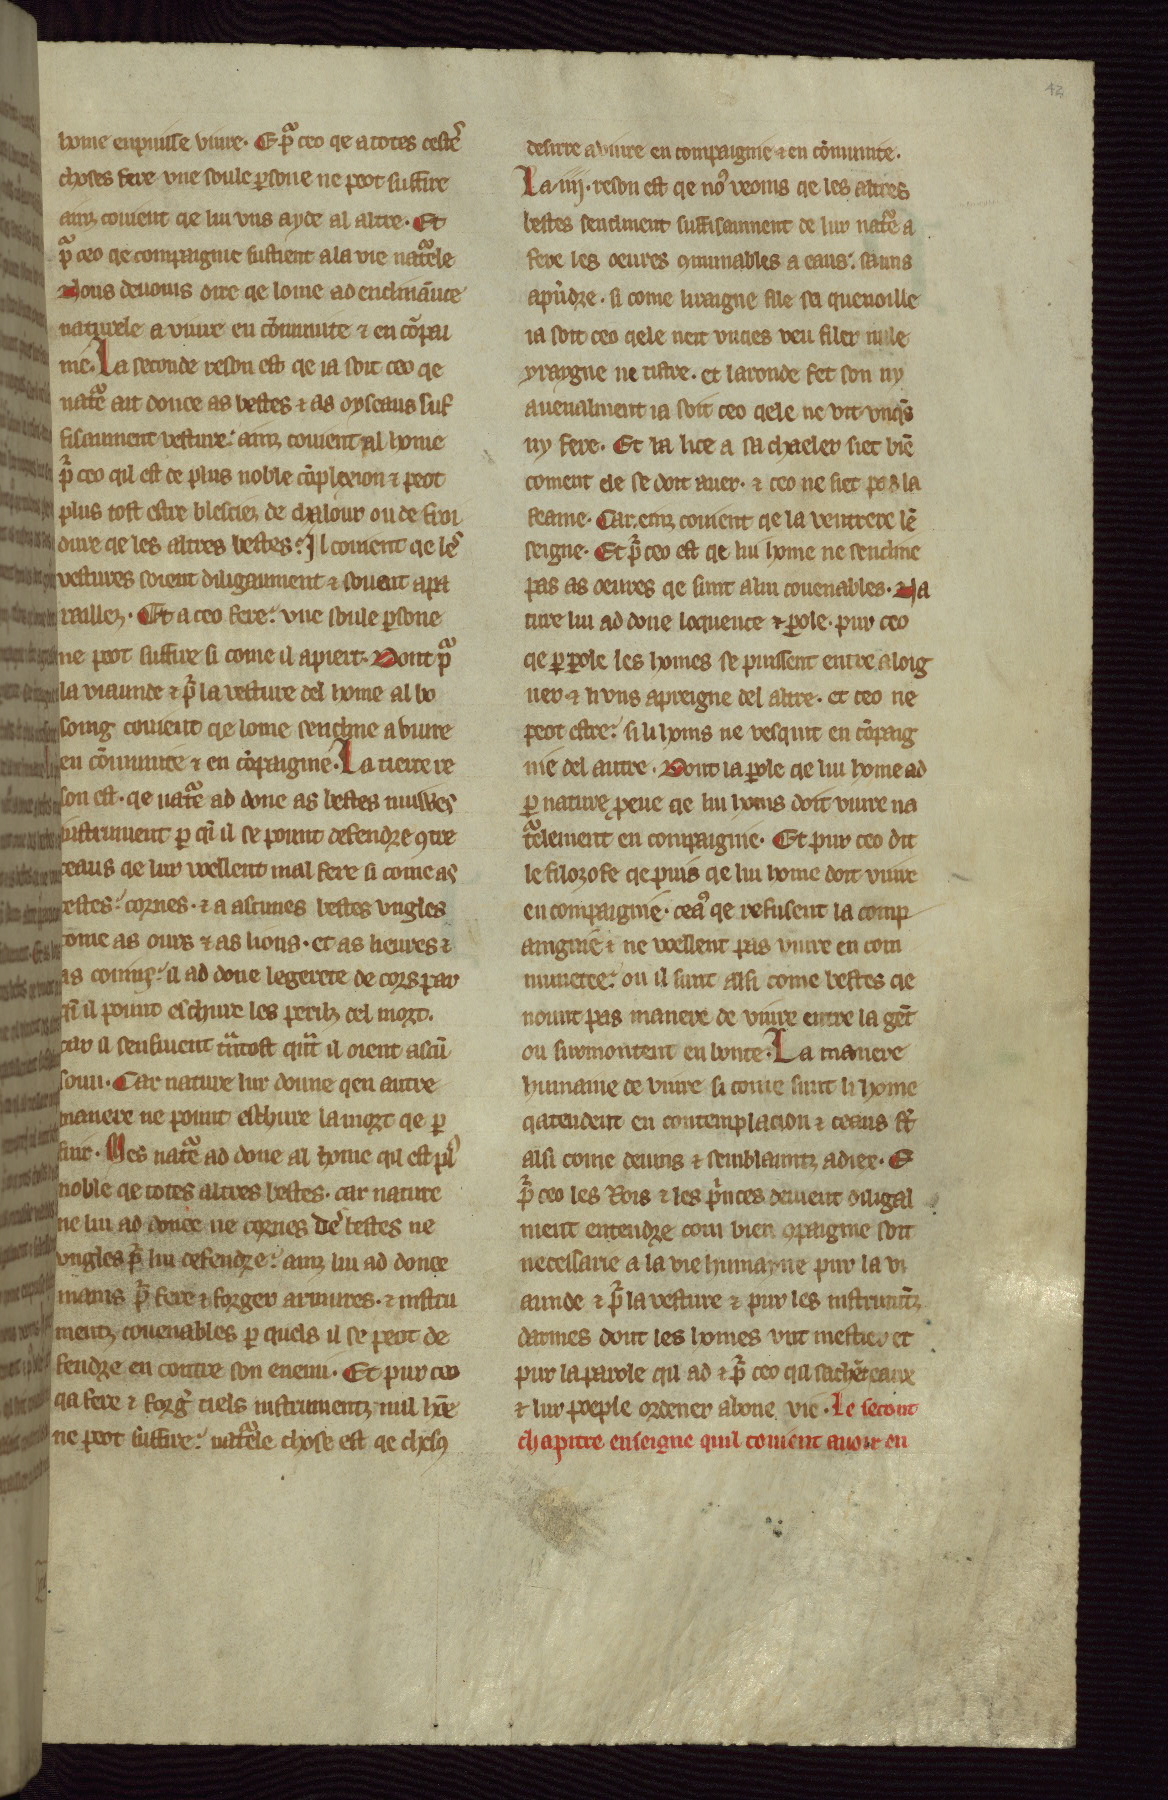 home enpuisse viure. E pᵃ ceo qe a totes cestes
choses fere vne soule ꝑsone ne peot suffire
ainz couient qe lui vns ayde al altre. Et
pᵃ ceo qe compaignie sustient a la vie natᵃele
Nous deuoms dire qe lome ad enclināunce
naturele a viure en cōmunite ⁊ en cōpai
nie. La seconde reson est qe ia soit ceo qe
natᵃe ait donee as bestes ⁊ as oyseaus suf
fisaument vesture: ainz couient al home
pᵃ ceo qil est de plus noble cōplexion ⁊ peot
plus tost estre blesciez de chalour ou de froi
dure qe les altres bestes: Il couient qe les
vestures soient diligaument ⁊ souent apa
raillez. Et a ceo fere: vne soule ꝑsone
ne peot suffire si come il apiert. Dont pᵃ
la viaunde ⁊ pᵃ la vesture del home al bo
soing couient qe lome sencline a viure
en cōmunite ⁊ en cōpaignie. La tierce re
son est. qe natᵃe ad done as bestes muwes
instrument ꝑ qͥ il se point defendre ꝯtre
ceaus qe lur wellent mal fere si come as
cestes: cornes. ⁊ a ascunes bestes vngles
come as ours ⁊ as lions. et as lieures ⁊
as conins: il ad done legerete de cors par
qͥ il point eschiure les perilz del mort.
car il senfuient tātost qāt il oient ascū
soun. Car nature lur donne qen autre
manere ne point eschiure la mort qe ꝑ
fuir. Mes natᵃe ad done al home qi est plꝰ
noble qe totes altres bestes. car nature
ne lui ad donee ne cornes de bestes ne
vngles pᵃ lui defendre: ainz lui ad donee
mains pᵃ fere ⁊ forger armures. ⁊ instru
mentz couenables ꝑ quels il se peot de
fendre en contre son enemi. Et pur ceo
qa fere ⁊ forgͥ tiels instrumentz nul hōe
ne peot suffire: natᵃele chose est qe chescꝰ
desirre a viure en compaignie ⁊ en cōmunite.
La .iiij. reson est qe noꝰ veoms qe les altres
bestes senclinent suffisaument de lur natᵃe a
fere les oeures ꝯmunables a eaus: saunz
apͥndre. si come liraigne file sa quenoille
ia soit ceo qele neit vnqes veu filer nule
yraygne ne tistre. et laronde fet son ny
auenalment ia soit ceo qele ne vit vnqs
ny fere. Et la lice a sa chaeler siet biē
coment ele se doit auer. ⁊ ceo ne siet pas la
feame. Car einz couient qe la ventrere lē
seigne. Et pᵃ ceo est qe lui home ne sencline
pas as oeures qe sunt a lui couenables. Na
ture lui ad done loquence ⁊ ꝑole. pur ceo
qe ꝑ ꝑole les homes se puissent entre aloig
ner ⁊ li vns apreigne del altre. et ceo ne
peot estre: si li homs ne vesquit en cōpaig
nie del autre. Dont la ꝑole qe lui home ad
ꝑ nature ꝓeue qe lui homs doit viure na
tᵃelement en compaignie. Et pur ceo dit
le filozofe qe puis qe lui home doit viure
en compaignie. ceaꝰ qe refusent la comp
aingnie ⁊ ne wellent pas viure en com
munetee: ou il sunt alsi come bestes qe
nount pas manere de viure entre la gēt
ou surmontent en bonte. La manere
humaine de viure si come sunt li home
qatendent en contemplacion ⁊ ceaus sūt
alsi come deuins ⁊ semblauntz a dieu. E
pᵃ ceo les Rois ⁊ les pͥnces deiuent diligal
ment entendre com bien ꝯpaignie soit
necessarie a la vie humayne pur la vi
aunde ⁊ pᵃ la vesture ⁊ pur les instrumētz
darmes dont les homes vnt mestier et
pur la parole qil ad ⁊ pᵃ ceo qil sachent eaux
⁊ lur poeple ordener a bone vie. Le secont
chapitre enseigne quil couient auoir en